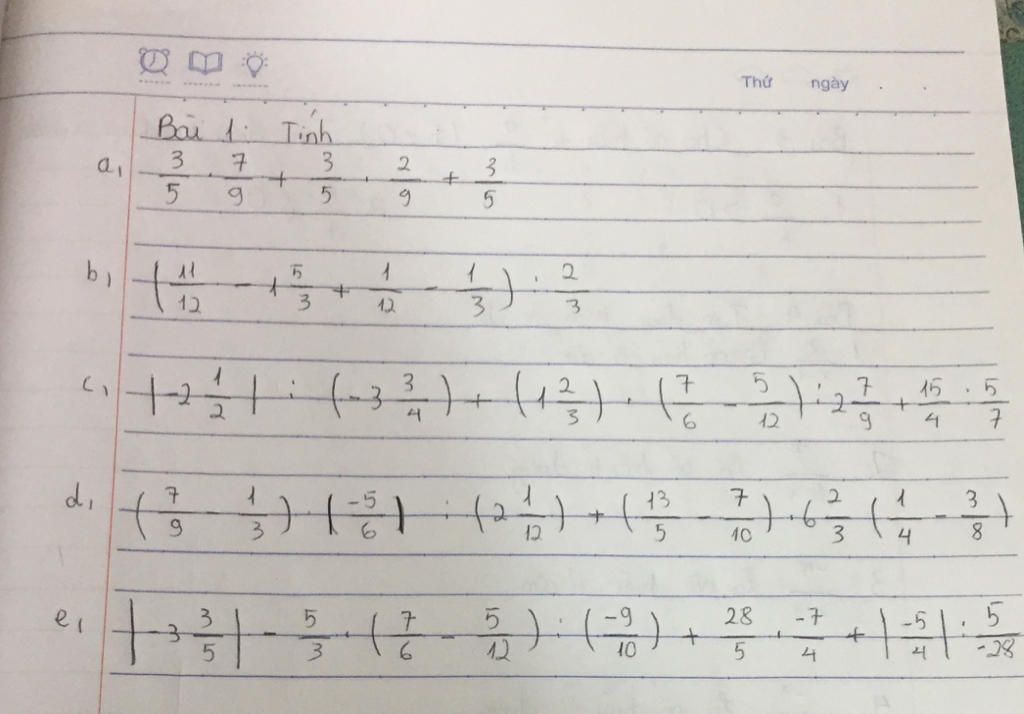 Thứ ngày . .
Bài 1: Tính
a, 3/5 . 7/9 + 3/5 . 2/9 + 3/5
b, (11/12 - 1 5/3 + 1/12 - 1/3) : 2/3
c, |-2 1/2| : (-3 3/4) + (1 2/3) . (7/6 - 5/12) : 2 7/9 + 15/4 : 5/7
d, (7/9 - 1/3) . |-5/6| : (2 1/12) + (13/5 - 7/10) . 6 2/3 (1/4 - 3/8)
e, |-3 3/5| - 5/3 . (7/6 - 5/12) : (-9/10) + 28/5 . -7/4 + |-5/4| : 5/-28